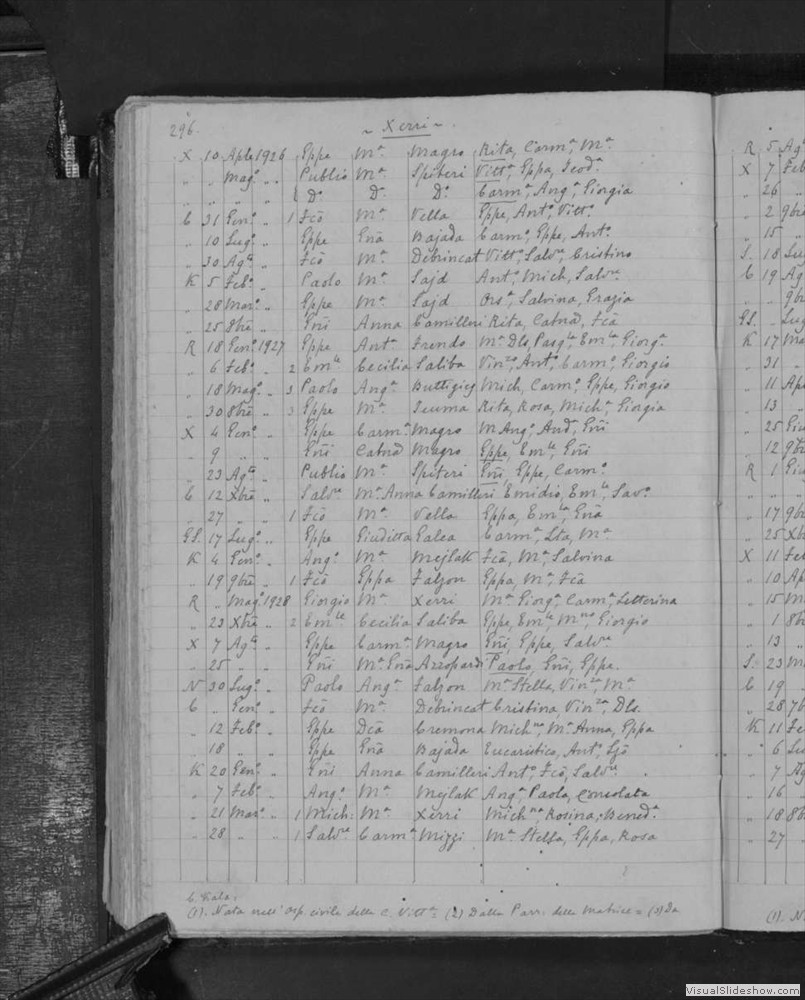 296.
~ Xerri ~
X 10 Aple 1926 Eppe Mª Magro Rita, Carmª, Mª
„ „ Magº „ Publio Mª Spiteri Vittª, Eppa, Teodª
„ „ „ „ { Dº Dº Dº Carmª, Angª, Giorgia
C 31 Genº „ 1 Fcō Mª Vella Eppe, Antº, Vittº
„ 10 Lugº „ Eppe Gnā Bajada Carmº, Eppe, Antº
„ 30 Agª „ Fcō Mª Debrincat Vittº, Salvre, Cristino
K 5 Febº „ Paolo Mª Sajd Antº, Mich, Salvre
„ 28 Marº „ Eppe Mª Sajd Orsª, Salvina, Grazia
„ 25 8bre „ Gñi Anna Camilleri Rita, Catnā, Fcā
R 18 Genº 1927 Eppe Antª Trendo Mª Dls, Pasqle, Emle, Giorgª
„ 6 Febº „ 2 Emle Cecilia Saliba Vinzº, Antº, Carmº, Giorgio
„ 18 Magº „ 3 Paolo Angª Buttigieg Mich, Carmº, Eppe, Giorgio
„ 30 8bre „ 3 Eppe Mª Scuma Rita, Rosa, Michª, Giorgia
X 4 Genº „ Eppe Carmª Magro M Angº, Andª, Gñi
„ 9 „ „ Gñi Catnā Magro Eppe, Emle, Gñi
„ 23 Agª „ Publio Mª Spiteri Gñi, Eppe, Carmº
C 12 Xbre „ Salvre Mª Anna Camilleri Emidio, Emle, Savº
„ 27 „ „ 1 Fcō Mª Vella Eppa, Emla, Gnā
GS. 17 Lugº „ Eppe Giuditta Galea Carmª, Lta, Mª
K 4 Genº „ Angº Mª Mejlak Fcā, Mª, Salvina
„ 19 9bre „ 1 Fcō Eppa Falzon Eppa, Mª, Fcā
R „ Magº 1928 Giorgio Mª Xerri Mª Giorgª, Carmª, Letterina
„ 23 Xbre „ 2 Emle Cecilia Saliba Eppe, Emle, Mno, Giorgio
X 7 Agª „ Eppe Carmª Magro Gñi, Eppe, Salvre
„ 25 „ „ Gñi Mª Gnā Azzopardi Paolo, Gñi, Eppe.
N 30 Lugº „ Paolo Angª Falzon Mª Stella, Vinzª, Mª
C „ Genº „ Fcō Mª Debrincat Cristina, Vinzª, Dls.
„ 12 Febº „ Eppe Dcā Cremona Michna, Mª Anna, Eppa
„ 18 „ „ Eppe Gnā Bajada Eucaristico, Antº, Lgō
K 20 Genº „ Gñi Anna Camilleri Antº, Fcō, Salvre
„ 7 Febº „ Angº Mª Mejlak Angª, Paola, Consolata
„ 21 Marº „ 1 Mich: Mª Xerri Michna, Rosina, Benedª
„ 28 „ „ 1 Salvre Carmª Mizzi Mª Stella, Eppa, Rosa
(1). Nata nell' Osp. civile della C. Vittª = (2) Dalla Parr. della Matrice = (3) Da
R 5 Agª
X 7 Feb
„ 26 „
„ 2 9bre
„ 15 „
S. 18 Lug
C 19 Ag
„ „ 9b
GS. „ Lug
K 17 Ma
„ 31 „
„ 11 Apl
„ 13 „
„ 25 Giu
„ 12 9bre
R 1 Giu
„ 17 9b
„ 25 Xb
X 11 Feb
„ 10 Ap
„ 15 M
„ 1 8b
„ 13 „
S. 23 M
C 19 „
„ 28 7b
K 11 Fe
„ 6 Lu
„ 7 Ag
„ 16 „
„ 18 8b
„ 27 „
(1). N
VisualSlideshow.com